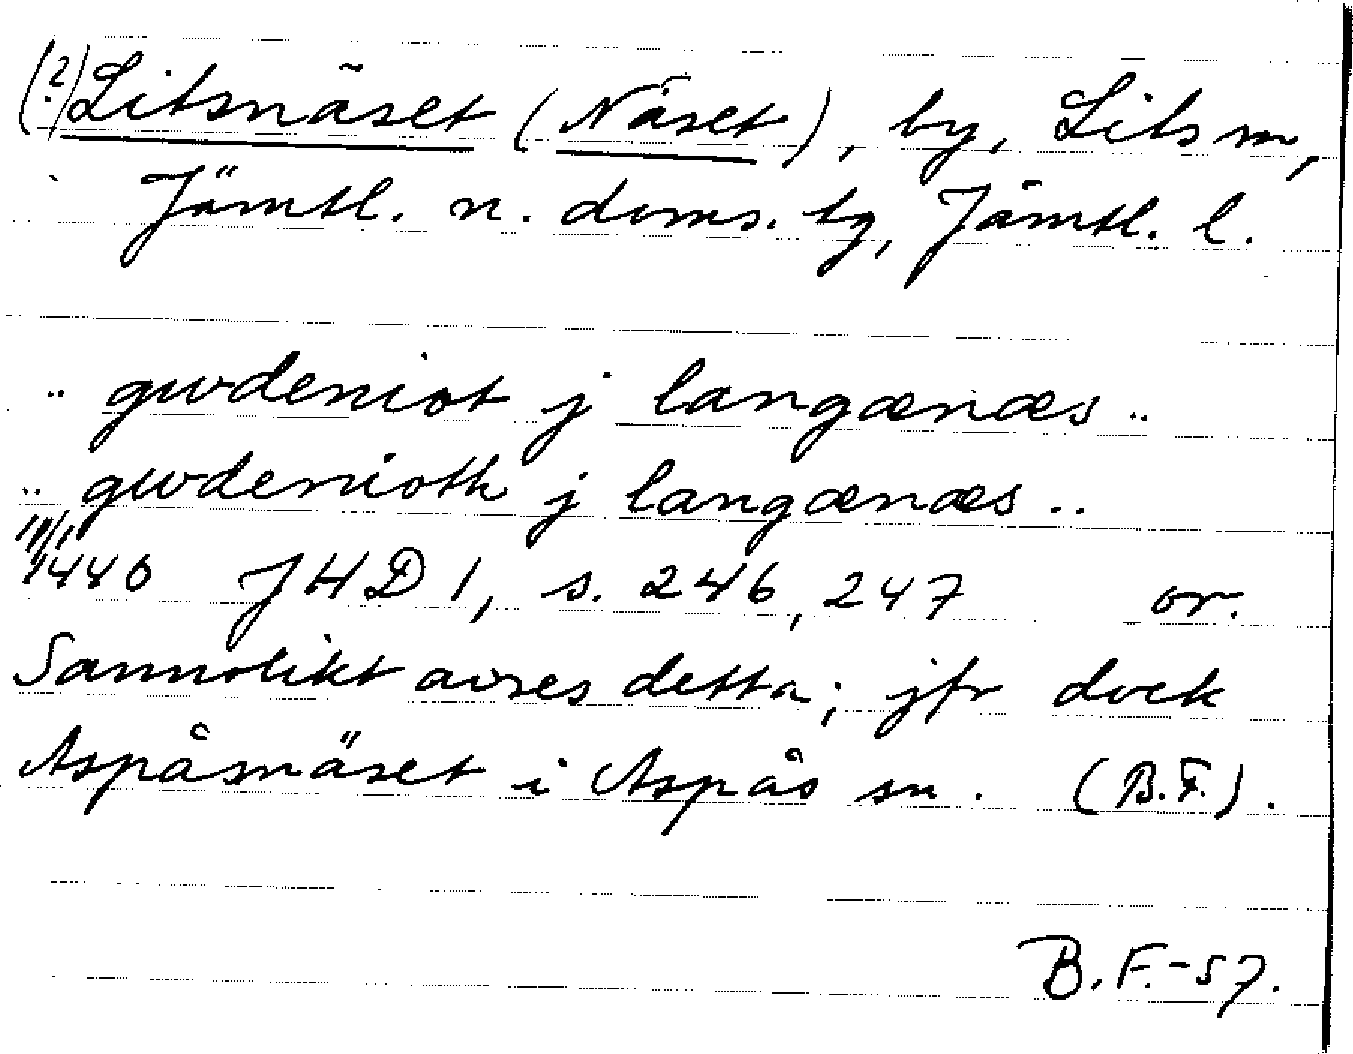 (?) Litsnäset (Näset), by, Lits sn,
Jämtl. n. doms. tg, Jämtl. l.
.. gwdeniot j langænæs ..
.. gwdenioth j langænæs ..
1440 JHD 1, s. 246, 247 or.
Sannolikt avses detta; jfr dock
Aspåsnäset i Aspås sn. (B.F.).
B.F.-57.